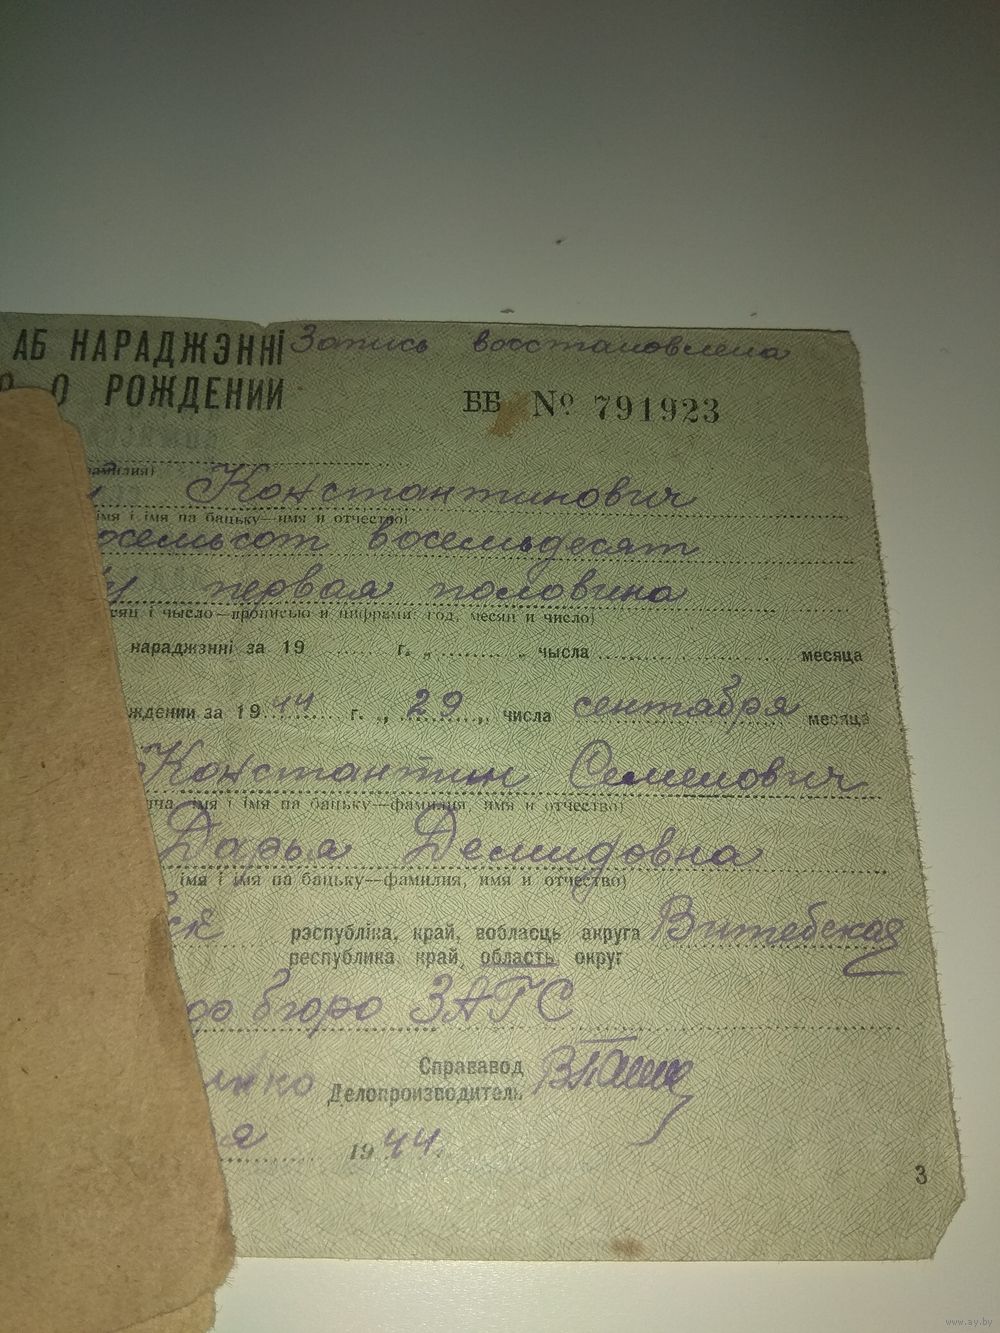 АБ НАРАДЖЭННІ Запись восстановлена
О РОЖДЕНИИ
ББ № 791923
Константинович
імя і імя па бацьку—имя и отчество)
восемьдесят
первая половина
і чысло—прописью и цифрами: год, месяц и число)
нараджэнні за 19 г. „ „ чысла месяца
ждении за 1944 г. „ 29 „ числа сентября месяца
Константин Семенович
імя і імя па бацьку—фамилия, имя и отчество)
Дарья Демидовна
імя і імя па бацьку—фамилия, имя и отчество)
ск рэспубліка, край, вобласць акруга Витебская
республика край, область округ
бюро ЗАГС
Справавод
Делопроизводитель
1944
3
www.ay.by